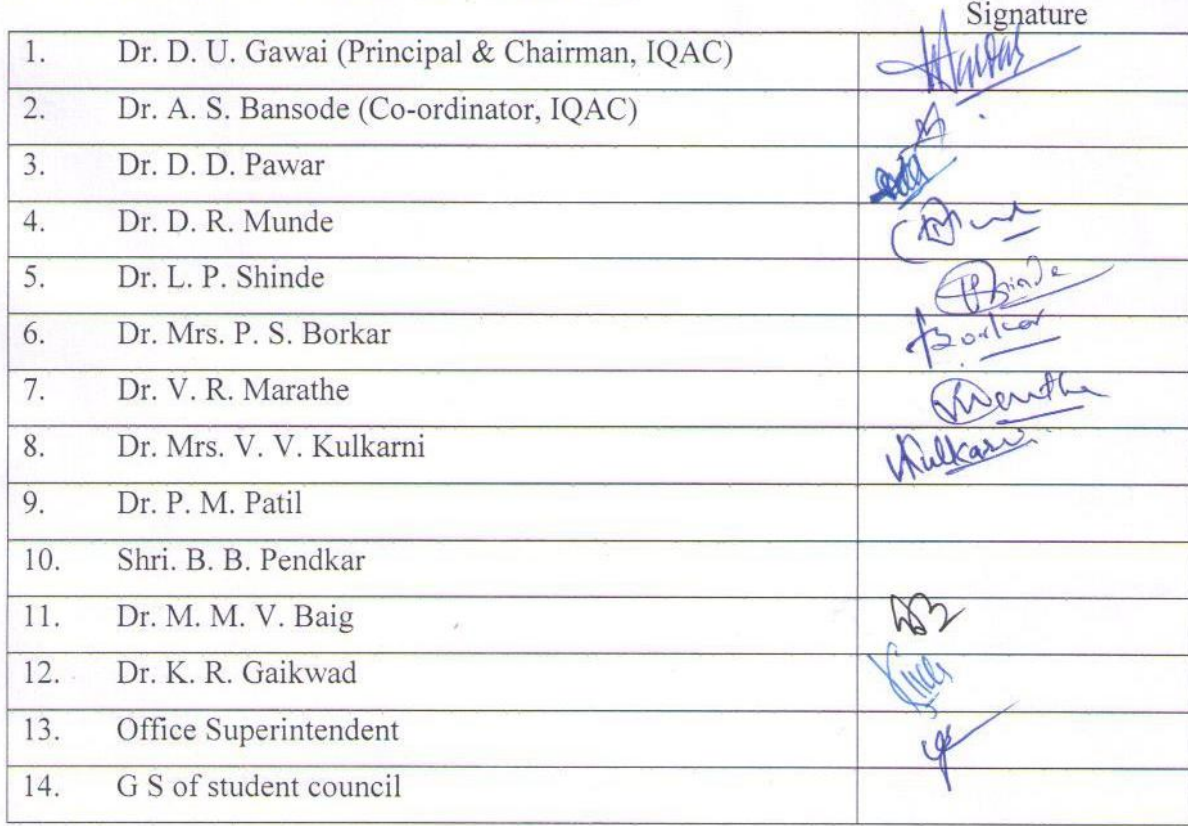 Signature
1. Dr. D. U. Gawai (Principal & Chairman, IQAC)
2. Dr. A. S. Bansode (Co-ordinator, IQAC)
3. Dr. D. D. Pawar
4. Dr. D. R. Munde
5. Dr. L. P. Shinde
6. Dr. Mrs. P. S. Borkar Borkar
7. Dr. V. R. Marathe
8. Dr. Mrs. V. V. Kulkarni VKulkarni
9. Dr. P. M. Patil
10. Shri. B. B. Pendkar
11. Dr. M. M. V. Baig
12. Dr. K. R. Gaikwad
13. Office Superintendent
14. G S of student council